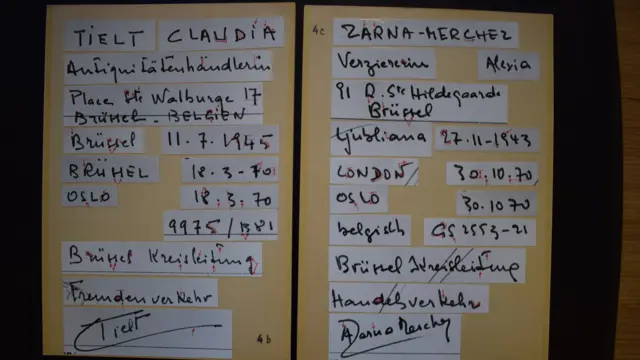 TIELT CLAUDIA
Antiquitätenhändlerin
Place Ste Walburge 17
BRÜSSEL. BELGIEN
Brüssel 11.7.1945
BRÜSSEL 18.3-70
OSLO 18.3.70
9975/1381
Brüssel Kreisleitung
Fremdenverkehr
Tielt
4b
4c
ZARNA-MERCHEZ
Verziererin Alexia
91 R. Ste Hildegarde
Brüssel
Ljubliana 27.11-1943
LONDON 30.10.70
OSLO 30.10.70
belgisch GS 2553-21
Brüssel Kreisleitung
Handelsverkehr